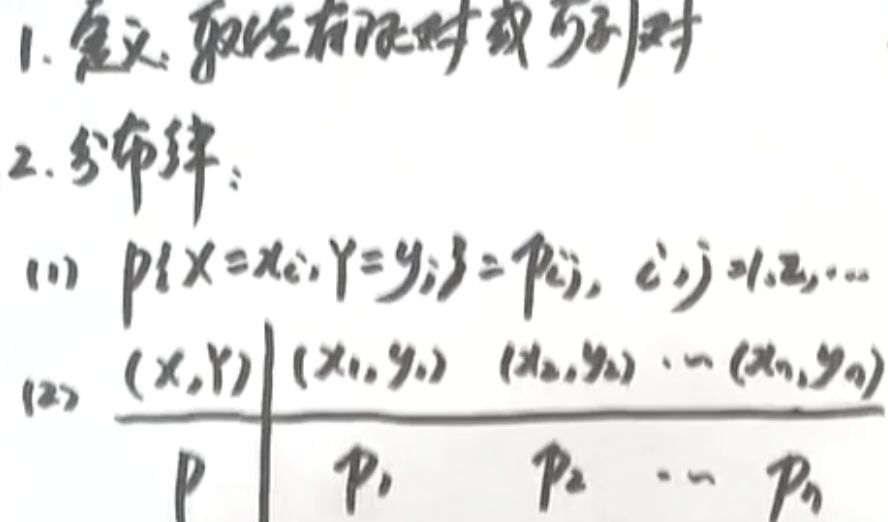 1. 定义: 取值有限对或可列对
2. 分布律:
(1) P{X=xi, Y=yj}=Pij, i,j=1,2,...
(2) (X,Y) | (x1,y1) (x2,y2) ... (xn,yn)
P | P1 P2 ... Pn